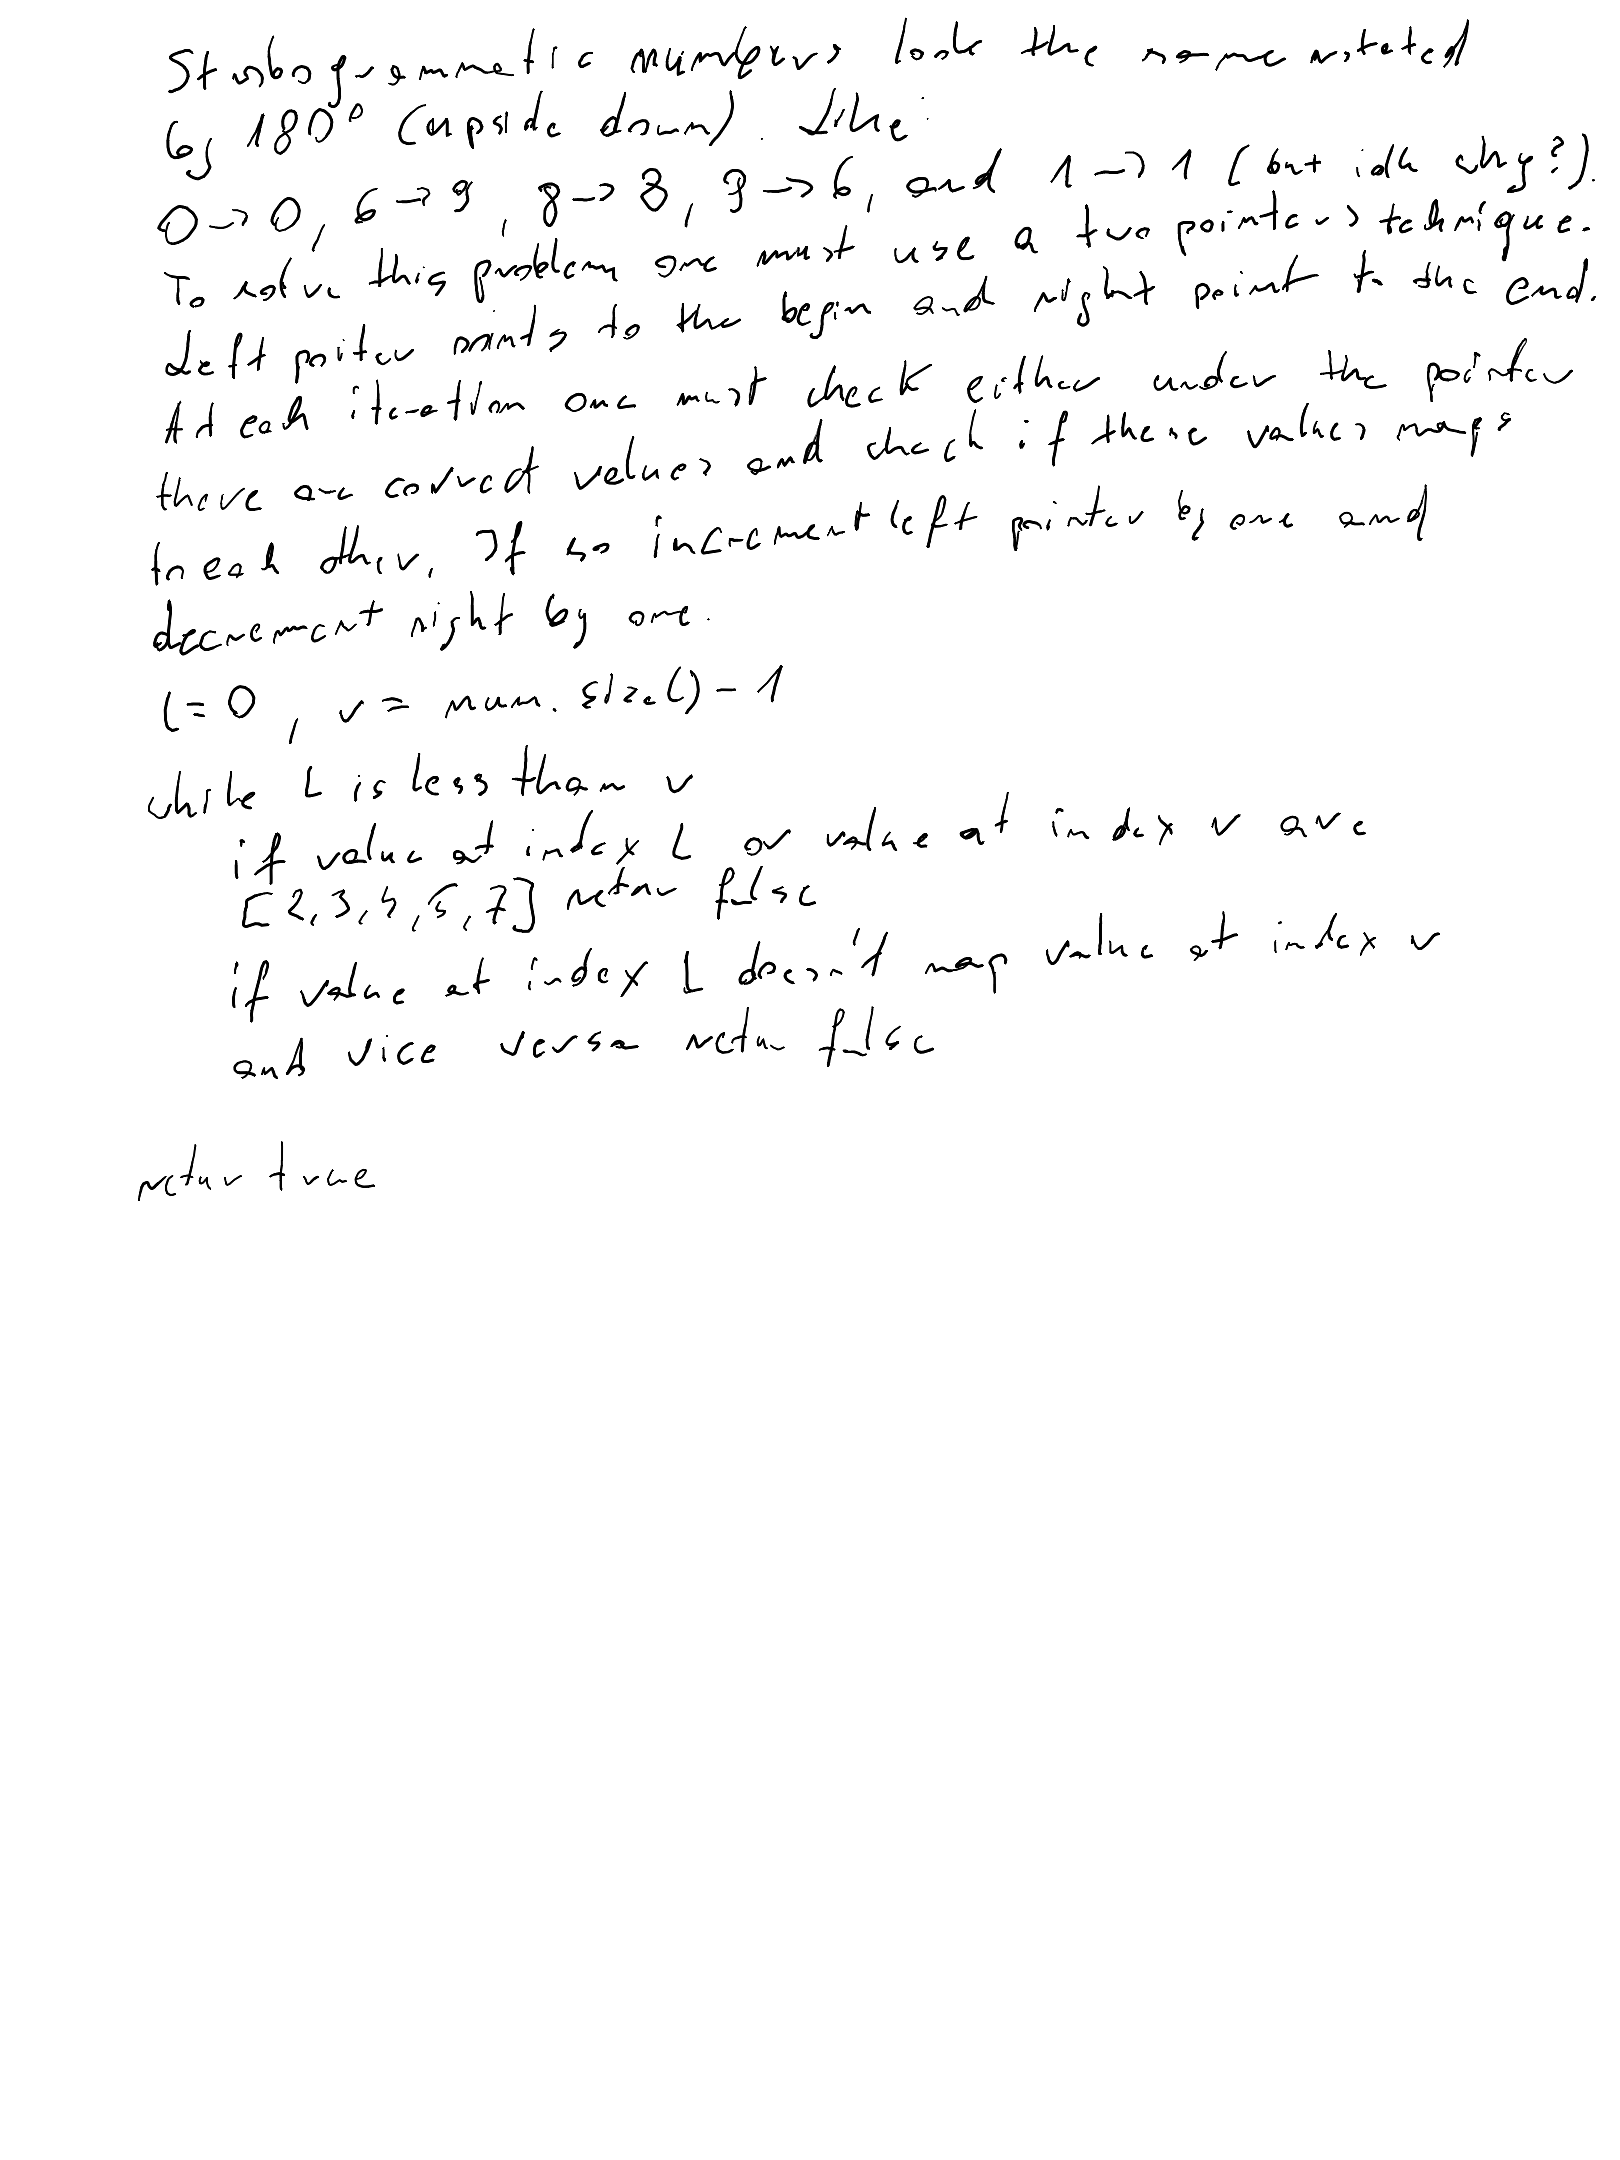 Strobogrammatic numbers look the same rotated
by 180° (upside down). Like:
0->0, 6->9, 8->8, 9->6, and 1->1 (but idk why?).
To solve this problem one must use a two pointers technique.
Left poiter points to the begin and right point to the end.
At each iteration one must check either under the pointer
there are correct values and check if these values maps
to each other. If so increment left pointer by one and
decrement right by one.
l=0, r = num.size()-1
while L is less than r
if value at index L or value at index r are
[2,3,4,5,7] retur false
if value at index L doesn't map value at index r
and vice versa retur false
retur true